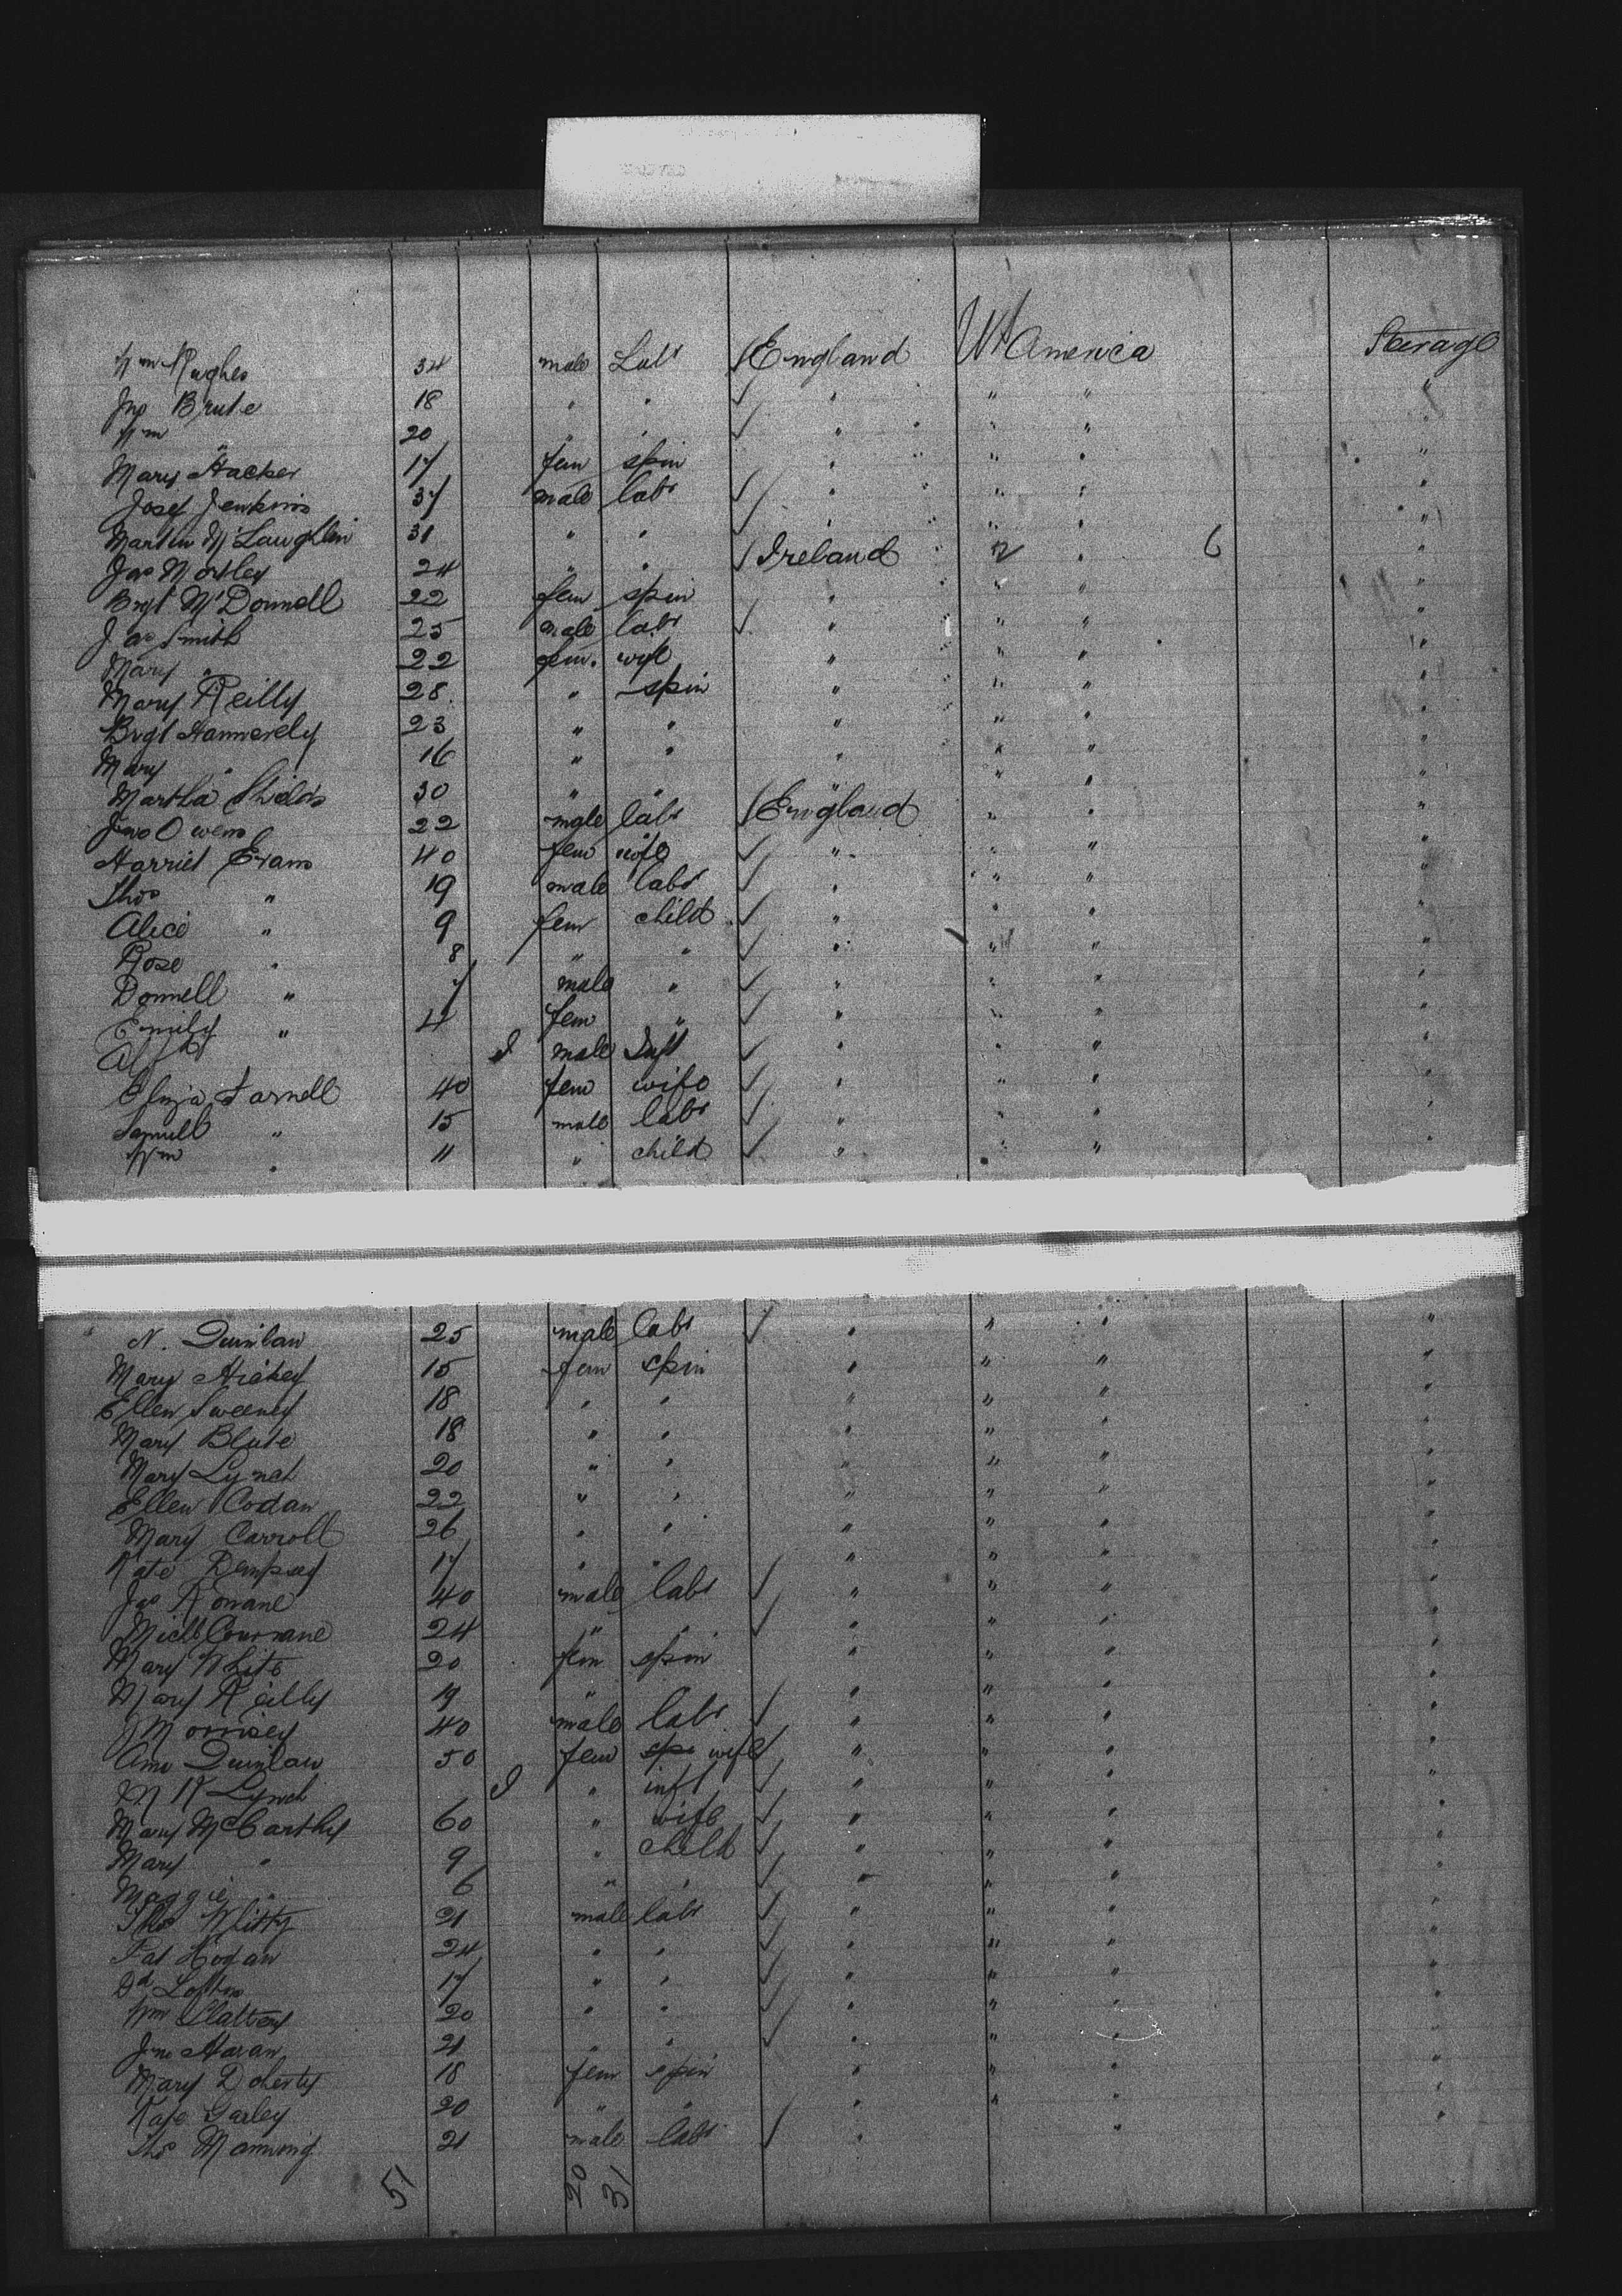 Wm Hughes 34 male Labr England Ud America Sterage
Jno Brute 18 " " " " " "
Wm " 20 " " " " " "
Mary Hacker 17 fem spin " " " "
Josef Jenkins 37 male labr " " " "
Martin McLaughlin 31 " " " " " "
Jas 24 " " Ireland " " 6 "
Brgt McDonnell 22 fem spin " " " "
Jas Smith 25 male labr " " " "
Mary " 22 fem. wife " " " "
Mary Reilly 28 " spin " " " "
Brgt 23 " " " " " "
Mary " 16 " " " " " "
Martha Shields 30 " " " " " "
Jno Owens 22 male labr England " " "
Harriet Evans 40 fem wife " " " "
Thos " 19 male labr " " " "
Alice " 9 fem child " " " "
Rose " 8 " " " " " "
Donnell " 7 male " " " " "
Emily " 4 fem " " " " "
Alf I male Inft " " " "
Eliza Farnell 40 fem wife " " " "
Samull " 15 male labr " " " "
Wm " 11 " child " " " "
N. Quinlan 25 male labr " " " "
Mary Hickey 15 fem spin " " " "
Ellen Sweeney 18 " " " " " "
Mary Blute 18 " " " " " "
Mary Lynch 20 " " " " " "
Ellen Codan 22 " " " " " "
Mary Carroll 26 " " " " " "
Kate Dempsey 17 " " " " " "
Jas Ronane 40 male labr " " " "
Michl 24 " " " " " "
Mary White 20 fem spin " " " "
Mary Reilly 19 " " " " "
J Morrisey 40 male labr " " " "
Ann Quinlan 50 fem wife " " " "
M K Lynch I " inft " " " "
Mary McCarthy 60 " wife " " " "
Mary " 9 " child " " " "
Maggie " 6 " " " " " "
Thos Whitty 21 male labr " " " "
Pat Hogan 24 " " " " " "
Dd Loftus 17 " " " " " "
Wm Slattery 20 " " " " " "
Jno Haran 21 " " " " " "
Mary Doherty 18 fem spin " " " "
Kate 20 " " " " " "
Thos Manning 21 male labr " " "
51 20 31